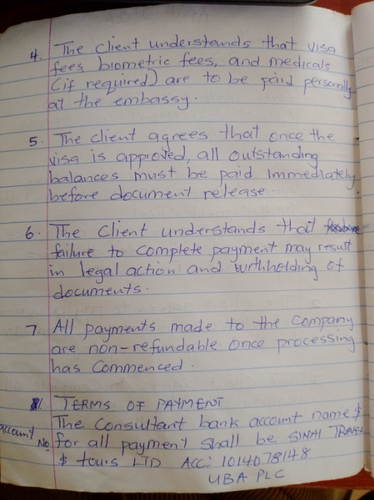 4. The client understands that visa
fees, biometric fees, and medicals
(if required) are to be paid personally
at the embassy.
5. The client agrees that once the
visa is approved, all outstanding
balances must be paid Immediately
before document release.
6. The Client understands that
failure to complete payment may result
in legal action and withholding of
documents.
7. All payments made to the Company
are non-refundable once processing
has Commenced.
8. TERMS OF PAYMENT
The Consultant bank account name &
account No for all payment shall be SINAI TRAVEL
& tours LTD Acc: 1014078148
UBA PLC